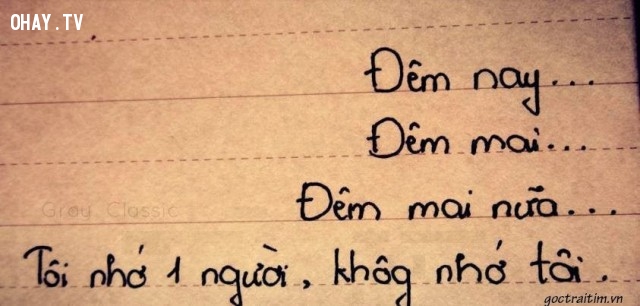 OHAY.TV
Đêm nay...
Đêm mai...
Đêm mai nữa...
Gray Classic
Tôi nhớ 1 người, khôg nhớ tôi.
goctraitim.vn